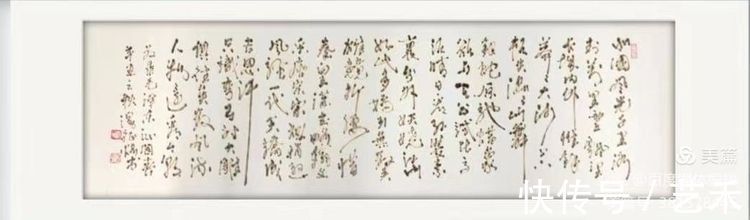 北国风光千里冰
封万里雪飘望
长城内外惟余
莽莽大河上下
顿失滔滔山舞
银蛇原驰蜡象
欲与天公试比高
须晴日看红装素
裹分外妖娆江山
如此多娇引无数英
雄竞折腰惜
秦皇汉武略输文
采唐宗宋祖稍逊
风骚一代天骄成
吉思汗
只识弯弓射大雕
俱往矣数风流
人物还看今朝
美篇
快传号/艺术